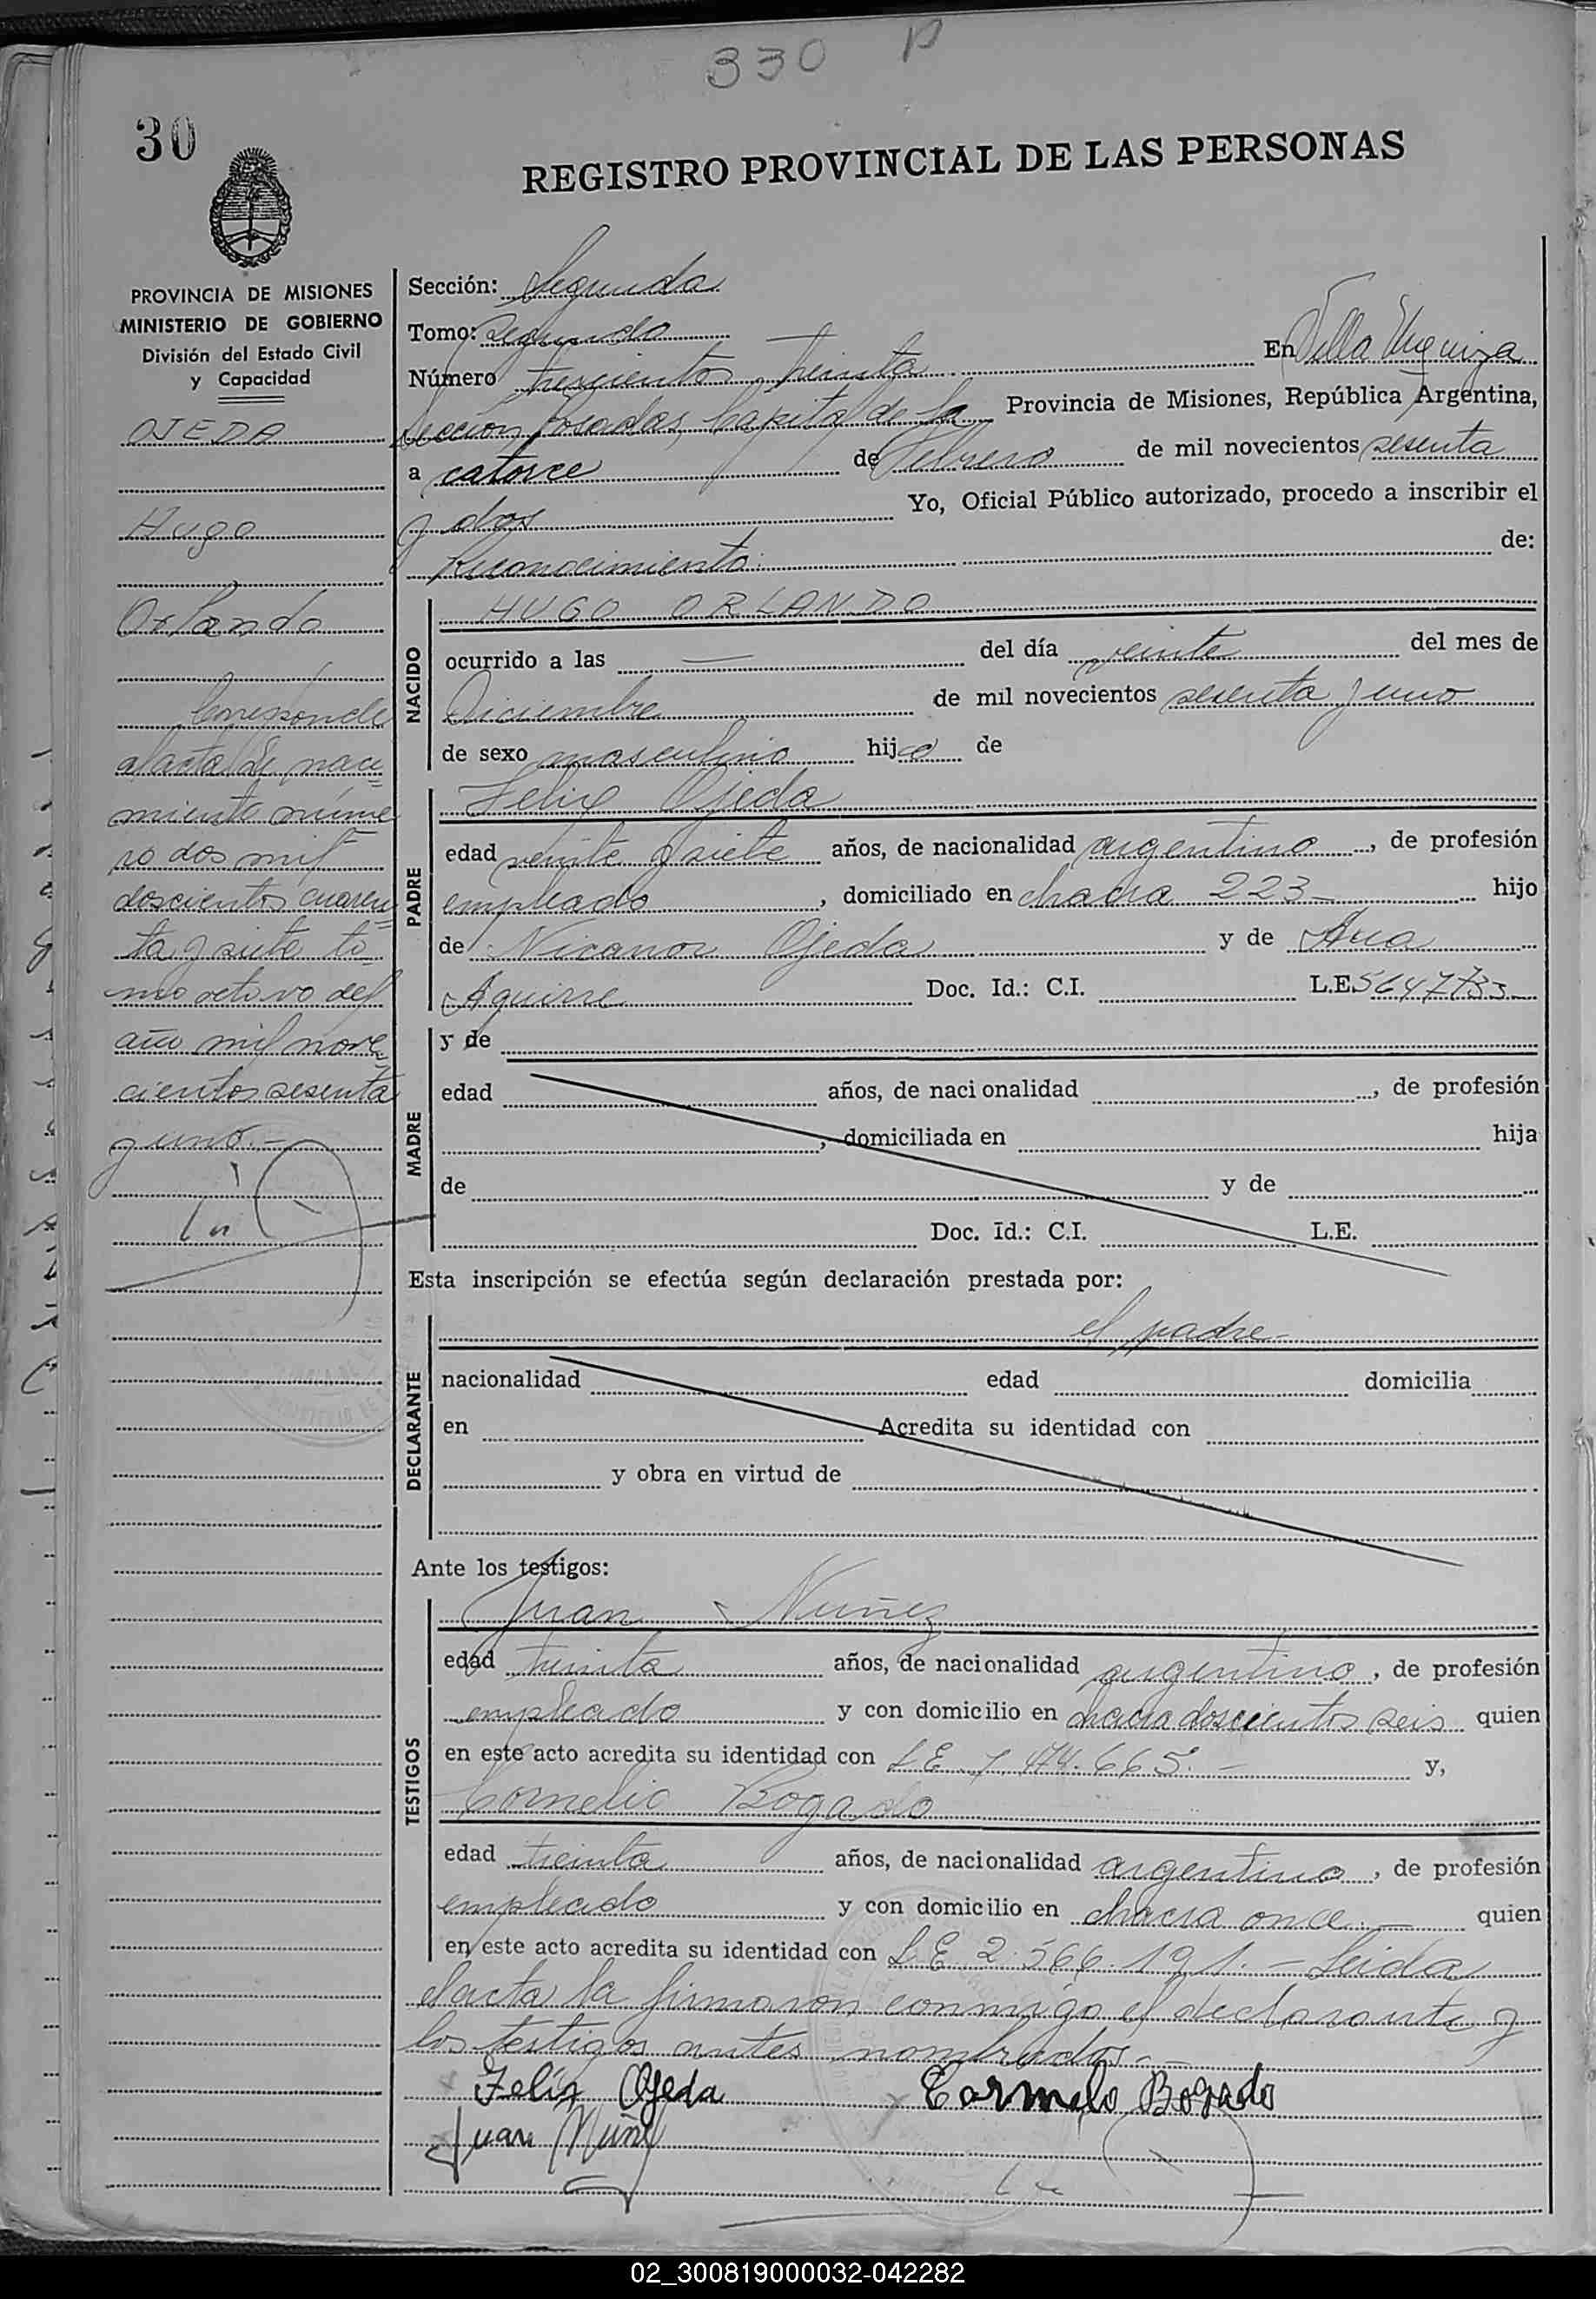 330 P
30
REGISTRO PROVINCIAL DE LAS PERSONAS
PROVINCIA DE MISIONES
MINISTERIO DE GOBIERNO
División del Estado Civil
y Capacidad
OJEDA
Hugo
Orlando
Corresponde
al acta de naci=
miento núme
ro dos mil
doscientos cuaren
ta y siete to=
mo octavo del
año mil nove
cientos sesenta
y uno.-
Sección: Segunda
Tomo: segundo
Número trescientos treinta En Villa Urquiza
Sección Posadas, Capital de la Provincia de Misiones, República Argentina,
a catorce de Febrero de mil novecientos sesenta
y dos Yo, Oficial Público autorizado, procedo a inscribir el
Reconocimiento: de:
NACIDO
HUGO ORLANDO
ocurrido a las — del día veinte del mes de
Diciembre de mil novecientos sesenta y uno
de sexo masculino hijo de
PADRE
Felix Ojeda
edad veinte y siete años, de nacionalidad argentino, de profesión
empleado, domiciliado en chacra 223- hijo
de Nicanor Ojeda y de Ana
Aguirre Doc. Id.: C.I. L.E. 5647733
MADRE
y de
edad años, de nacionalidad , de profesión
, domiciliada en hija
de y de
Doc. Id.: C.I. L.E.
Esta inscripción se efectúa según declaración prestada por:
DECLARANTE
el padre-
nacionalidad edad domicilia
en Acredita su identidad con
y obra en virtud de
Ante los testigos:
TESTIGOS
Juan Nuñez
edad treinta años, de nacionalidad argentino, de profesión
empleado y con domicilio en chacra doscientos seis quien
en este acto acredita su identidad con LE 7.474.665.- y,
Cornelio Bogado
edad treinta años, de nacionalidad argentino, de profesión
empleado y con domicilio en chacra once.- quien
en este acto acredita su identidad con LE 2.566.191.- Leida
el acta la firmaron conmigo el declarante y
los testigos antes nombrados.-
Felix Ojeda Carmelo Bogado
Juan Nuñez
02_300819000032-042282